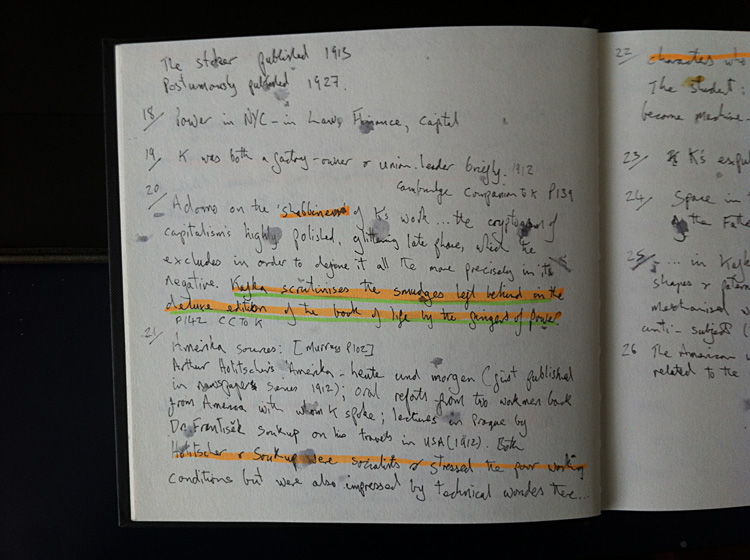 The stoker published 1913
Postumously published 1927.
18/ Power in NYC - in Law, Finance, capital
19/ K was both a factory-owner & union-leader briefly. 1912
Cambridge Companion to K P139
20/ Adorno on the 'shabbiness' of K's work ... the cryptogram of
capitalism's highly polished, glittering late phase, which he
excludes in order to define it all the more precisely in its
negative. Kafka scrutinises the smudges left behind in the
deluxe edition of the book of life by the fingers of power.
P142 CC to K
21/ Amerika sources: [Murray P102]
Arthur Holitscher's Amerika - heute und morgen (first published
in newspapers series 1912); oral reports from two workmen back
from America with whom K spoke; lectures in Prague by
Dr František Soukup on his travels in USA (1912). Both
Holitscher & Soukup were socialists & stressed the poor working
conditions but were also impressed by technical wonders there...
22/ characters who
The student:
become machine-
23/ K's expul
24/ Space in
the Fathe
25/ ... in Kafk
shapes &
mechanised
anti-subject
26 The American
related to the